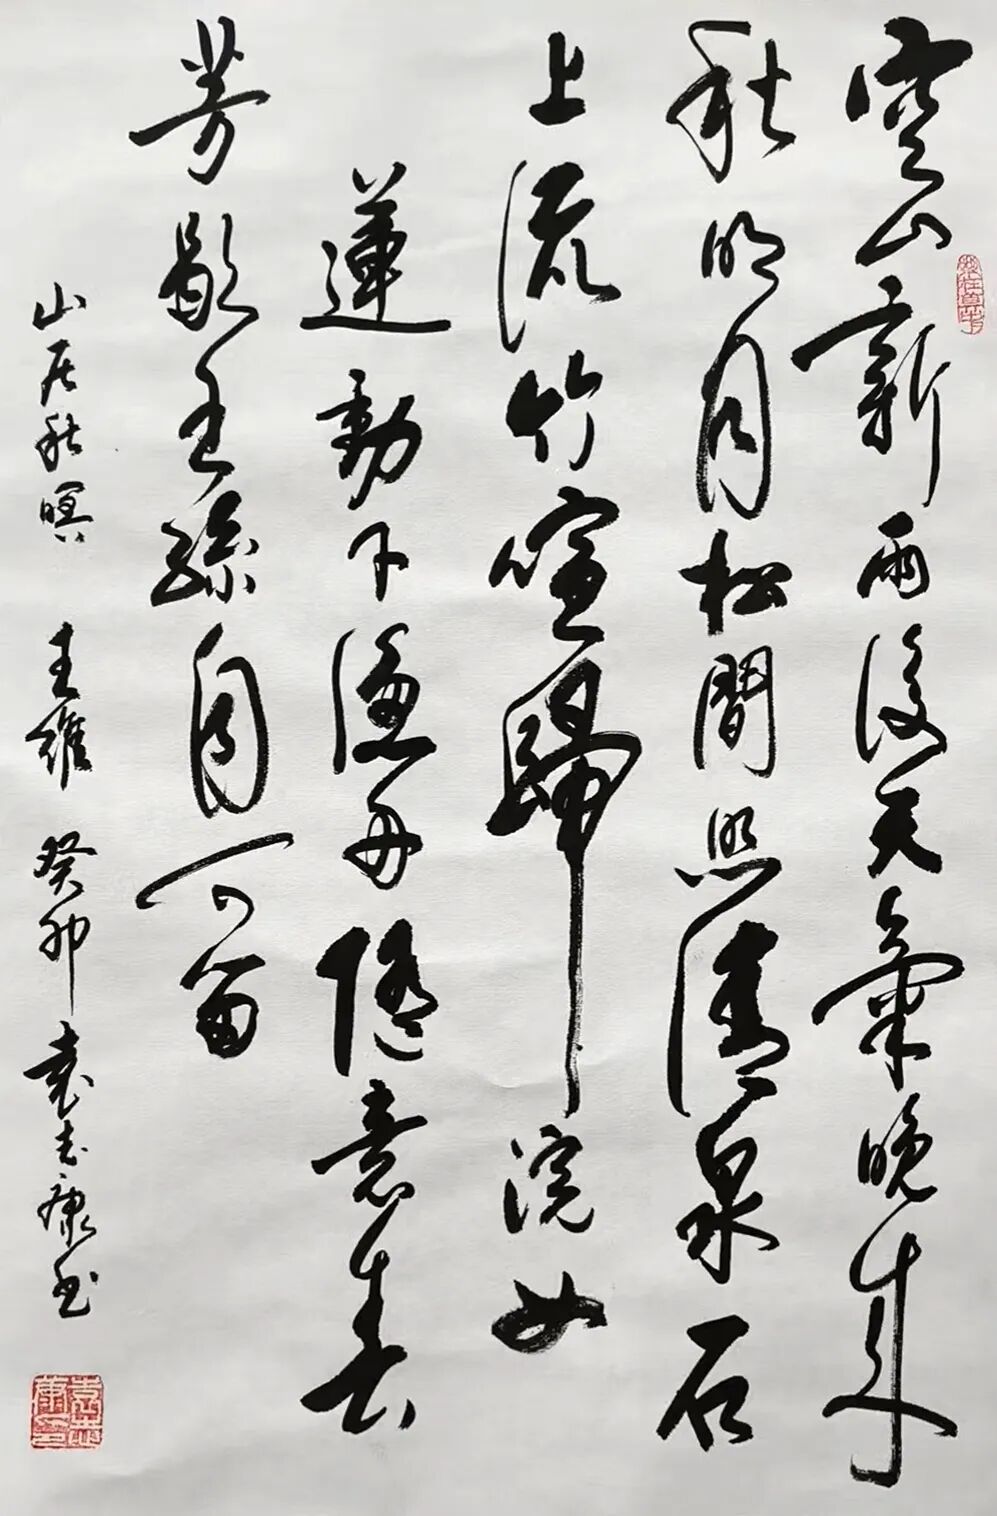 空山新雨後天氣晚來
秋明月松間照清泉石
上流竹喧歸浣女
蓮動下漁舟隨意春
芳歇王孫自可留
山居秋暝 王維 癸卯 袁志康书
袁志康印